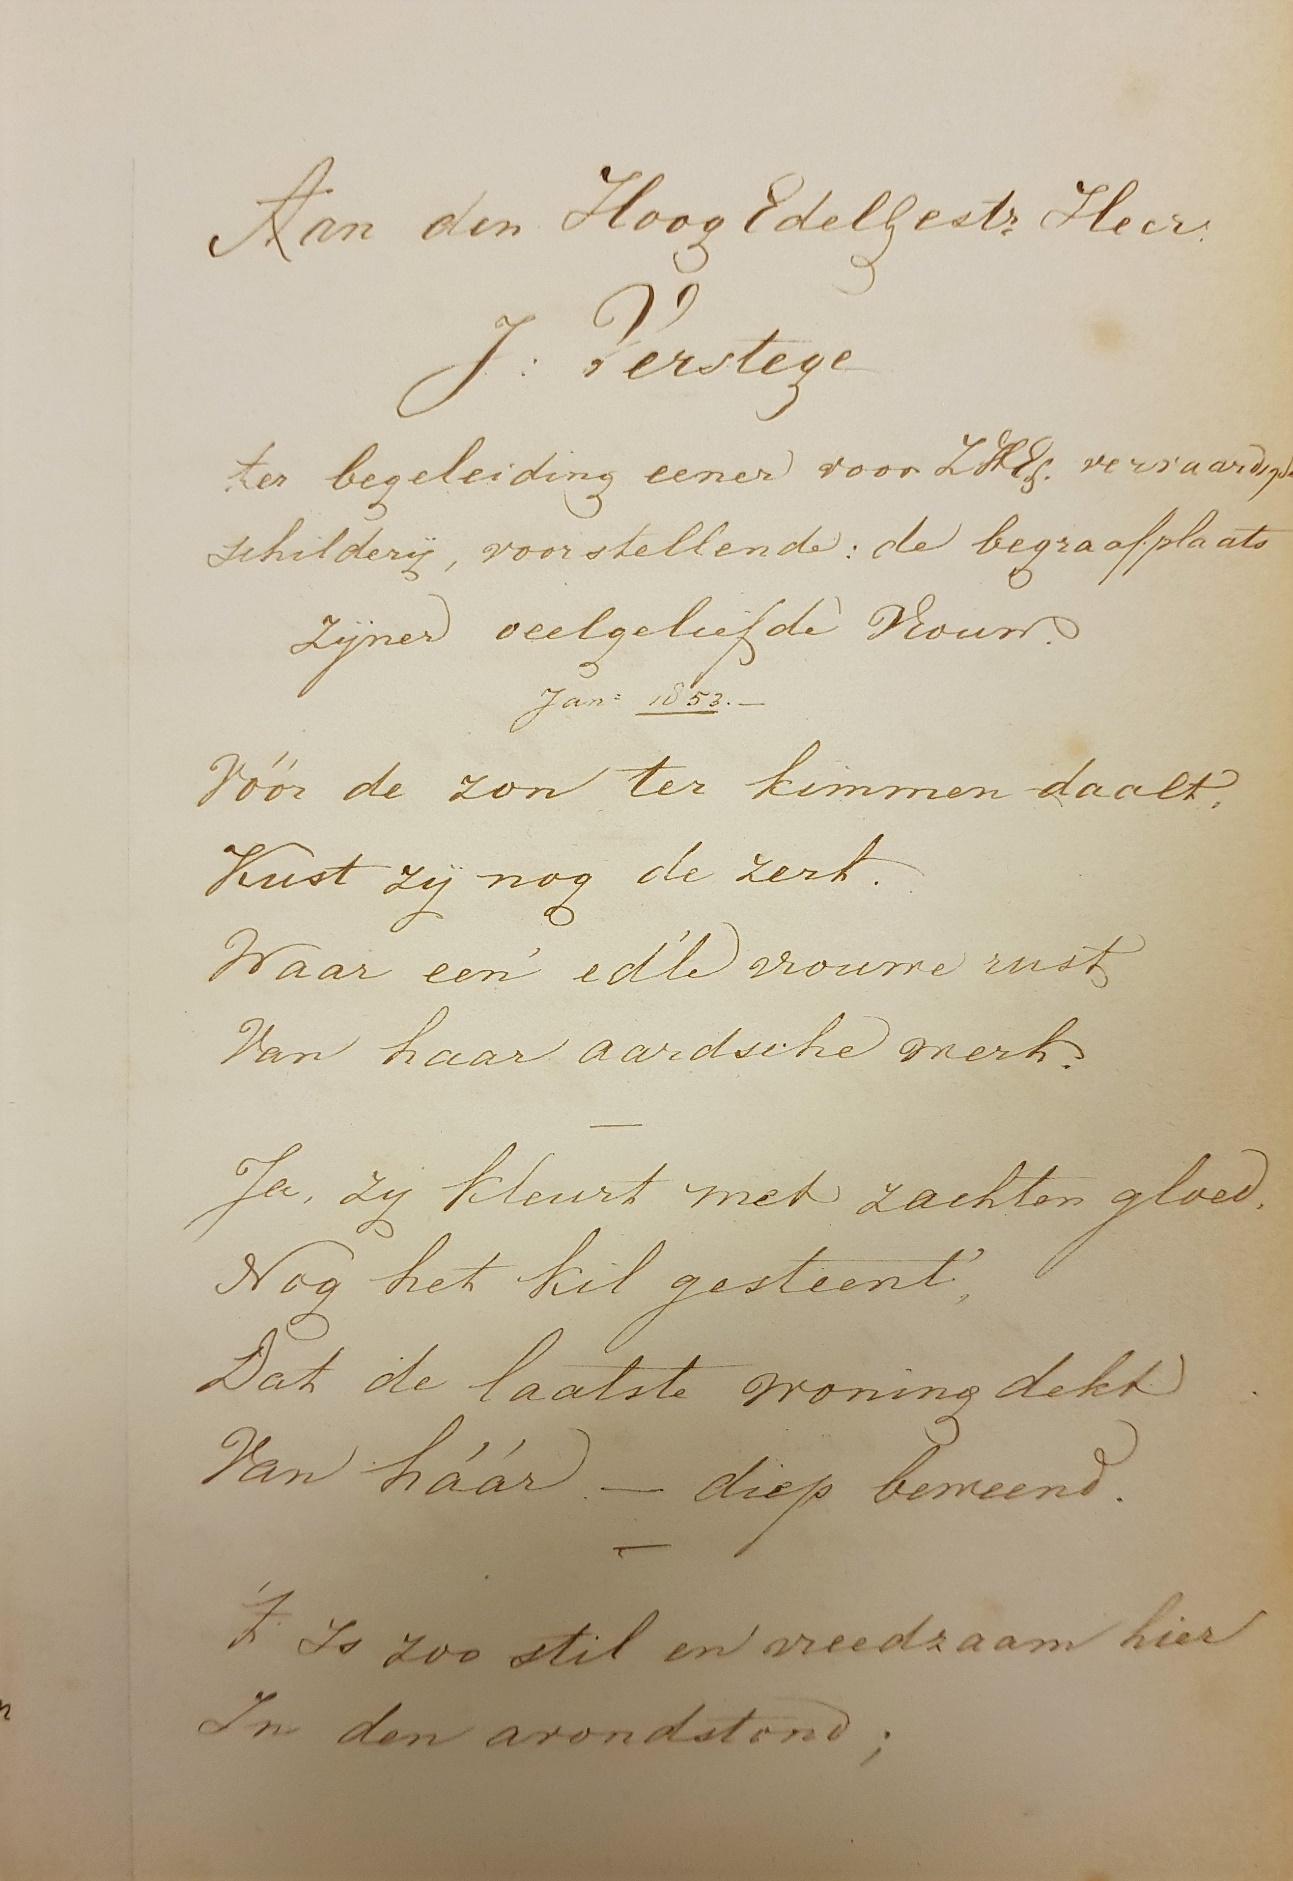 Aan den HoogEdelGestr Heer.
J: Verstege
ter begeleiding eener voor ZHEG. vervaardigde
schilderij, voorstellende: de begraafplaats
zijner veelgeliefde Vrouw.
Jan: 1853.—
Vóór de zon ter kimmen daalt,
Kust zij nog de zerk.
Waar een' ed'le vrouwe rust
Van haar aardsche werk.
—
Ja, zij kleurt met zachten gloed,
Nog het kil gesteent',
Dat de laatste woning dekt
Van háár — diep beweend.
—
't Is zoo stil en vreedzaam hier
In den avondstond;